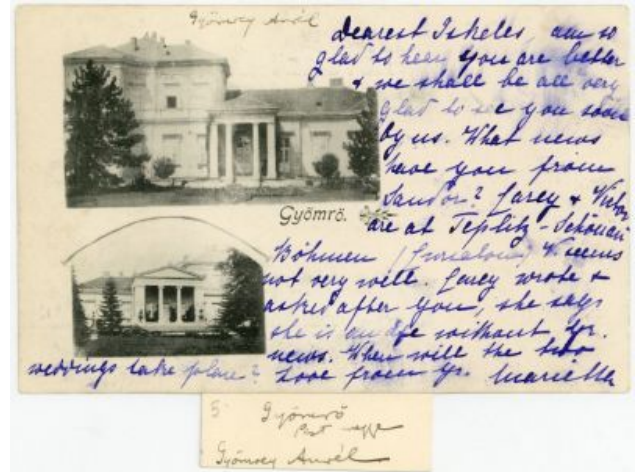 Gyömrey Aurél
Dearest Iskeles, am so
glad to hear you are better
& we shall be all very
glad to see you soon
by us. What news
have you from
Sandor? Jarey & Victor
are at Teplitz-Schönau
Böhmen seems
not very well. Jarey wrote &
asked after you, she says
she is without yr.
news. When will the two
weddings take place? Love from yr. Marietta
Gyömrő.
5 Gyömrő
Pest megye
Gyömrey Aurél